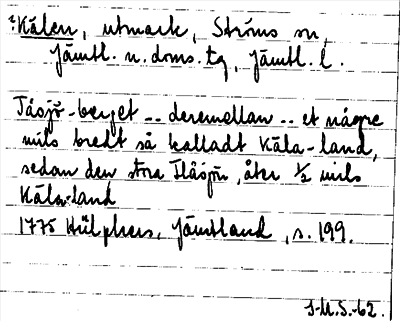 ?Kälen, utmark, Ströms sn,
Jämtl. n. doms. tg, Jämtl. l.
Tåsjö-berget .. deremellan .. et några
mils bredt så kalladt Käla-land,
sedan den stora Flåsjön, åter 1/2 mils
Käla-land
1775 Hülphers, Jämtland, s. 199.
J.M.S.-62.